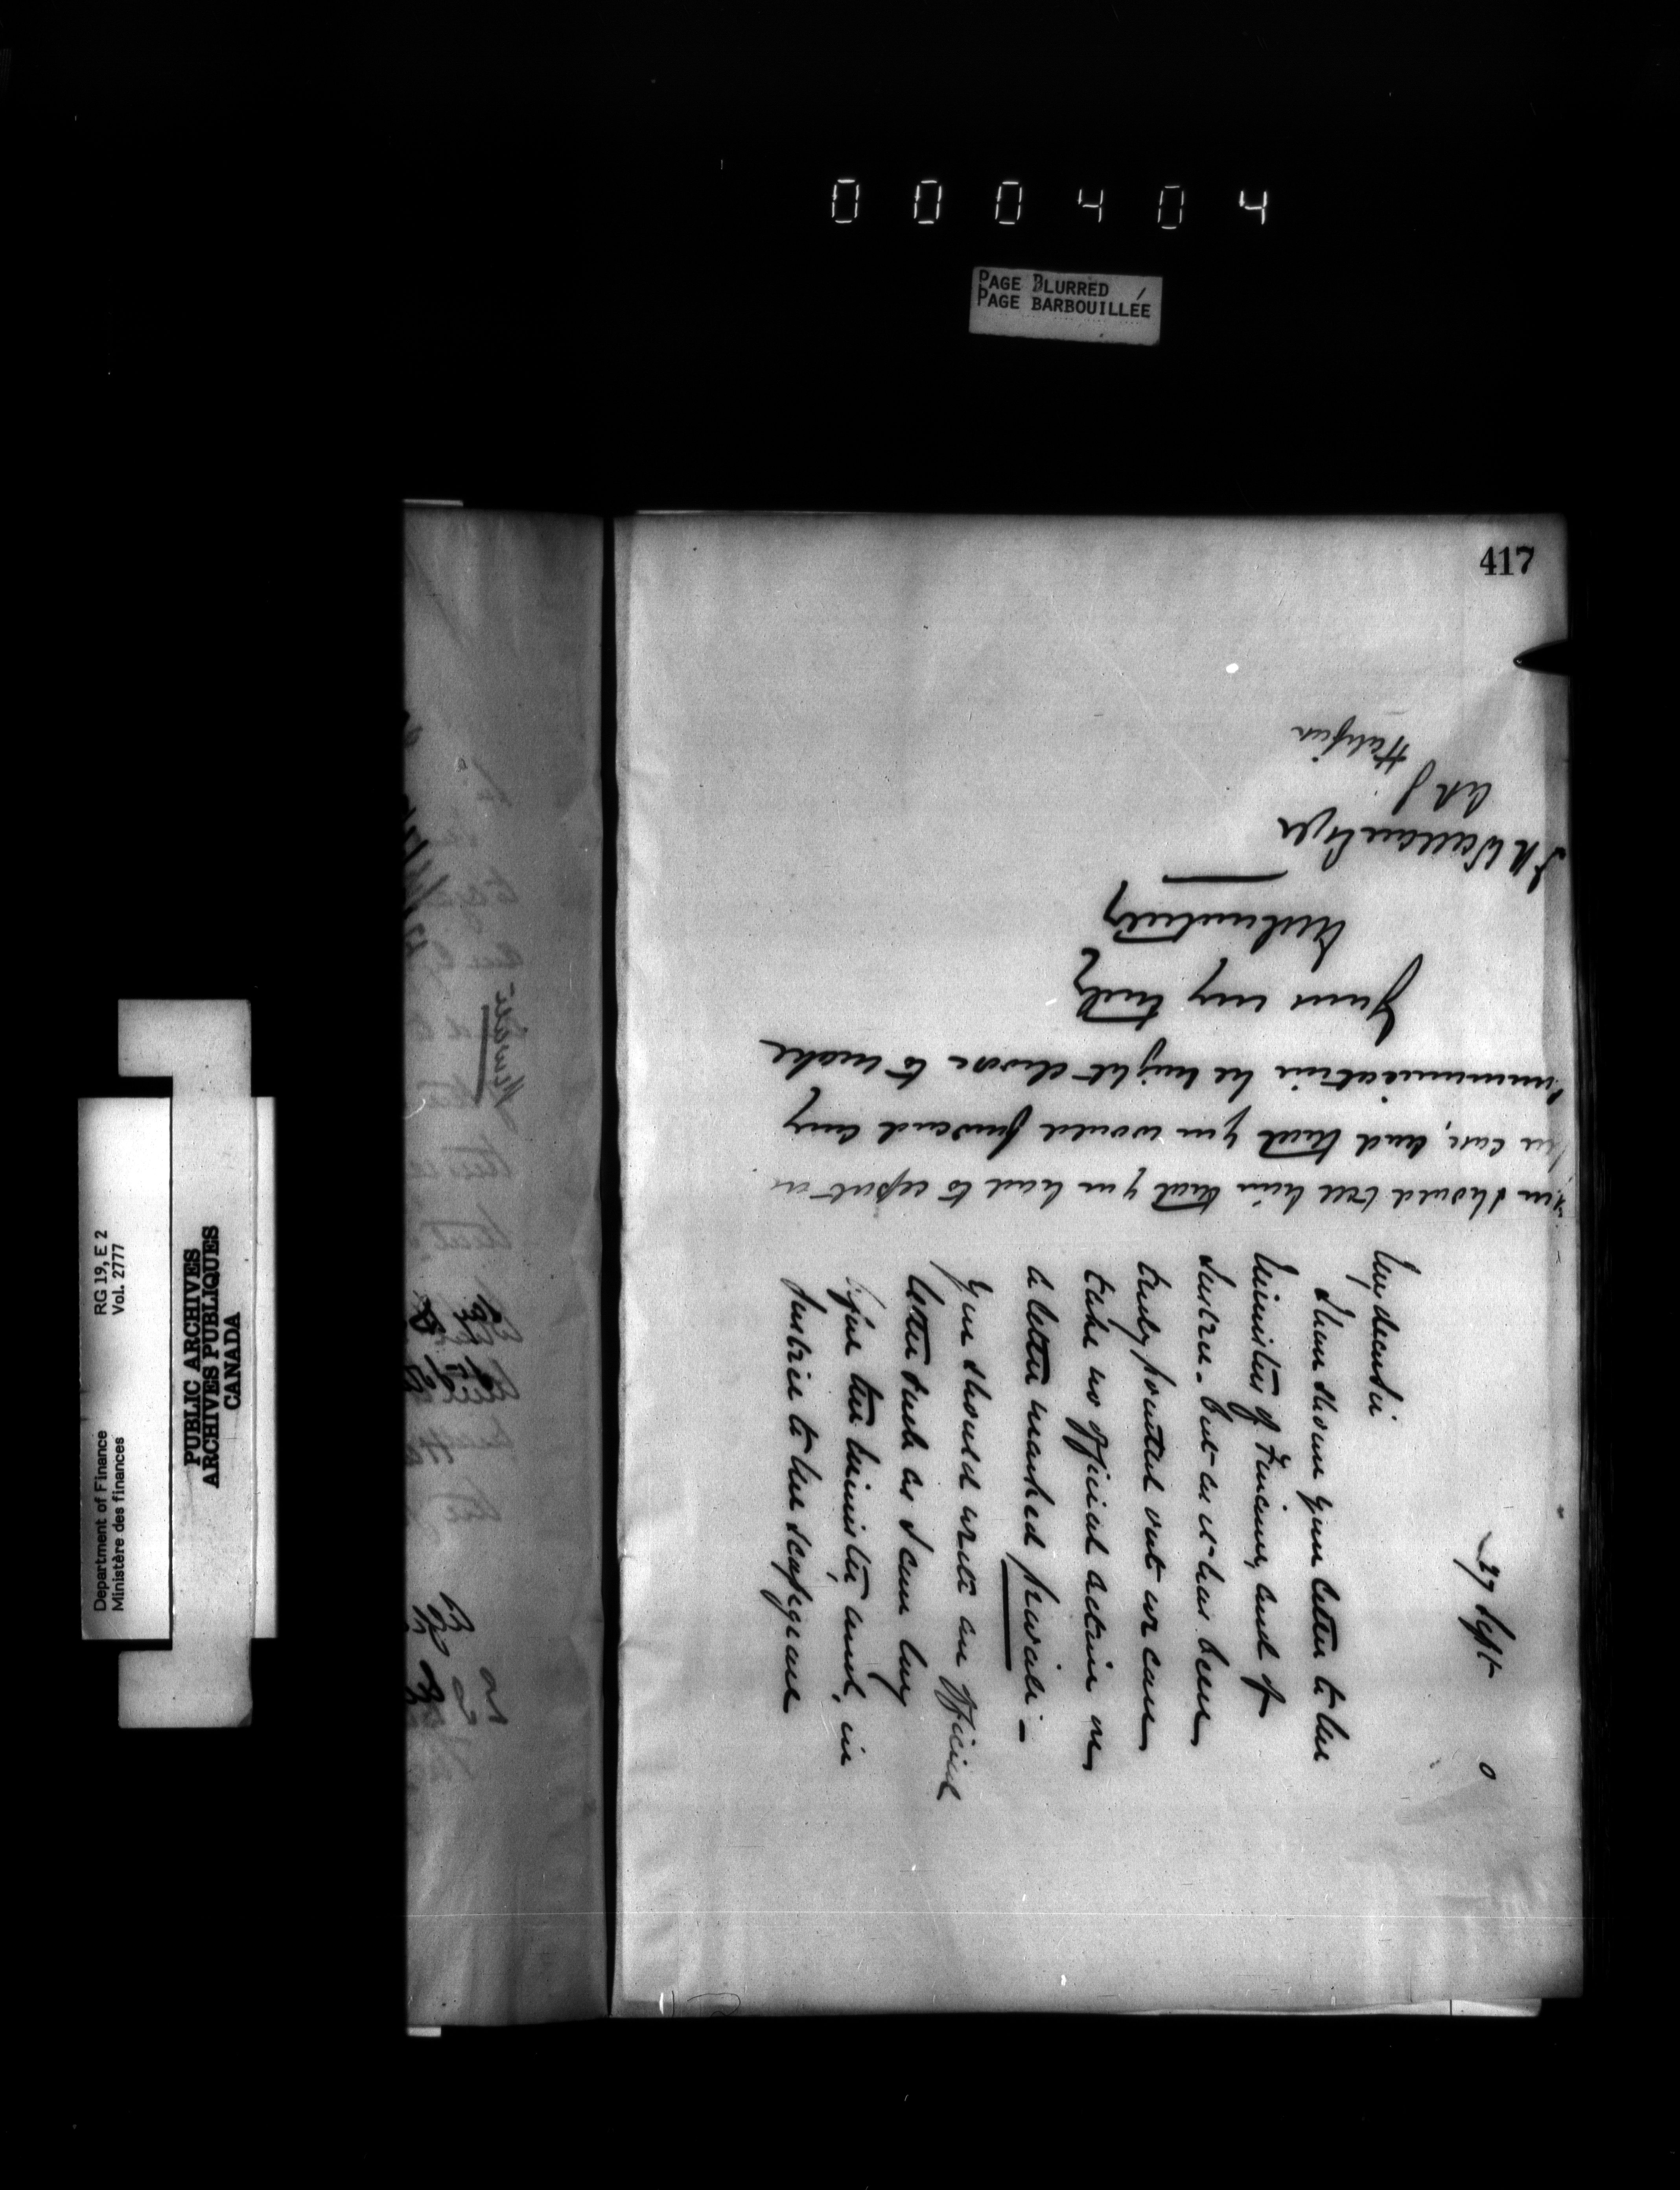 000404
PAGE BLURRED
PAGE BARBOUILLÉE
417
27 Sept 0
My dear Sir
I have shown your letter to the
Ministers of Finance, and of
Justice. But as it has been
truly pointed out we can
take no official action on
a letter marked private -
You should write an official
letter such as I can lay
before the Minister, and, in
Justice to the scapegrace
you should tell him that you had to report on
his case, and that you would forward any
communication he might choose to make
Yours very truly
JMCourtney
Wallace Esqr
A R G
Halifax
Private
Department of Finance RG 19, E 2
Ministère des finances Vol. 2777
PUBLIC ARCHIVES
ARCHIVES PUBLIQUES
CANADA